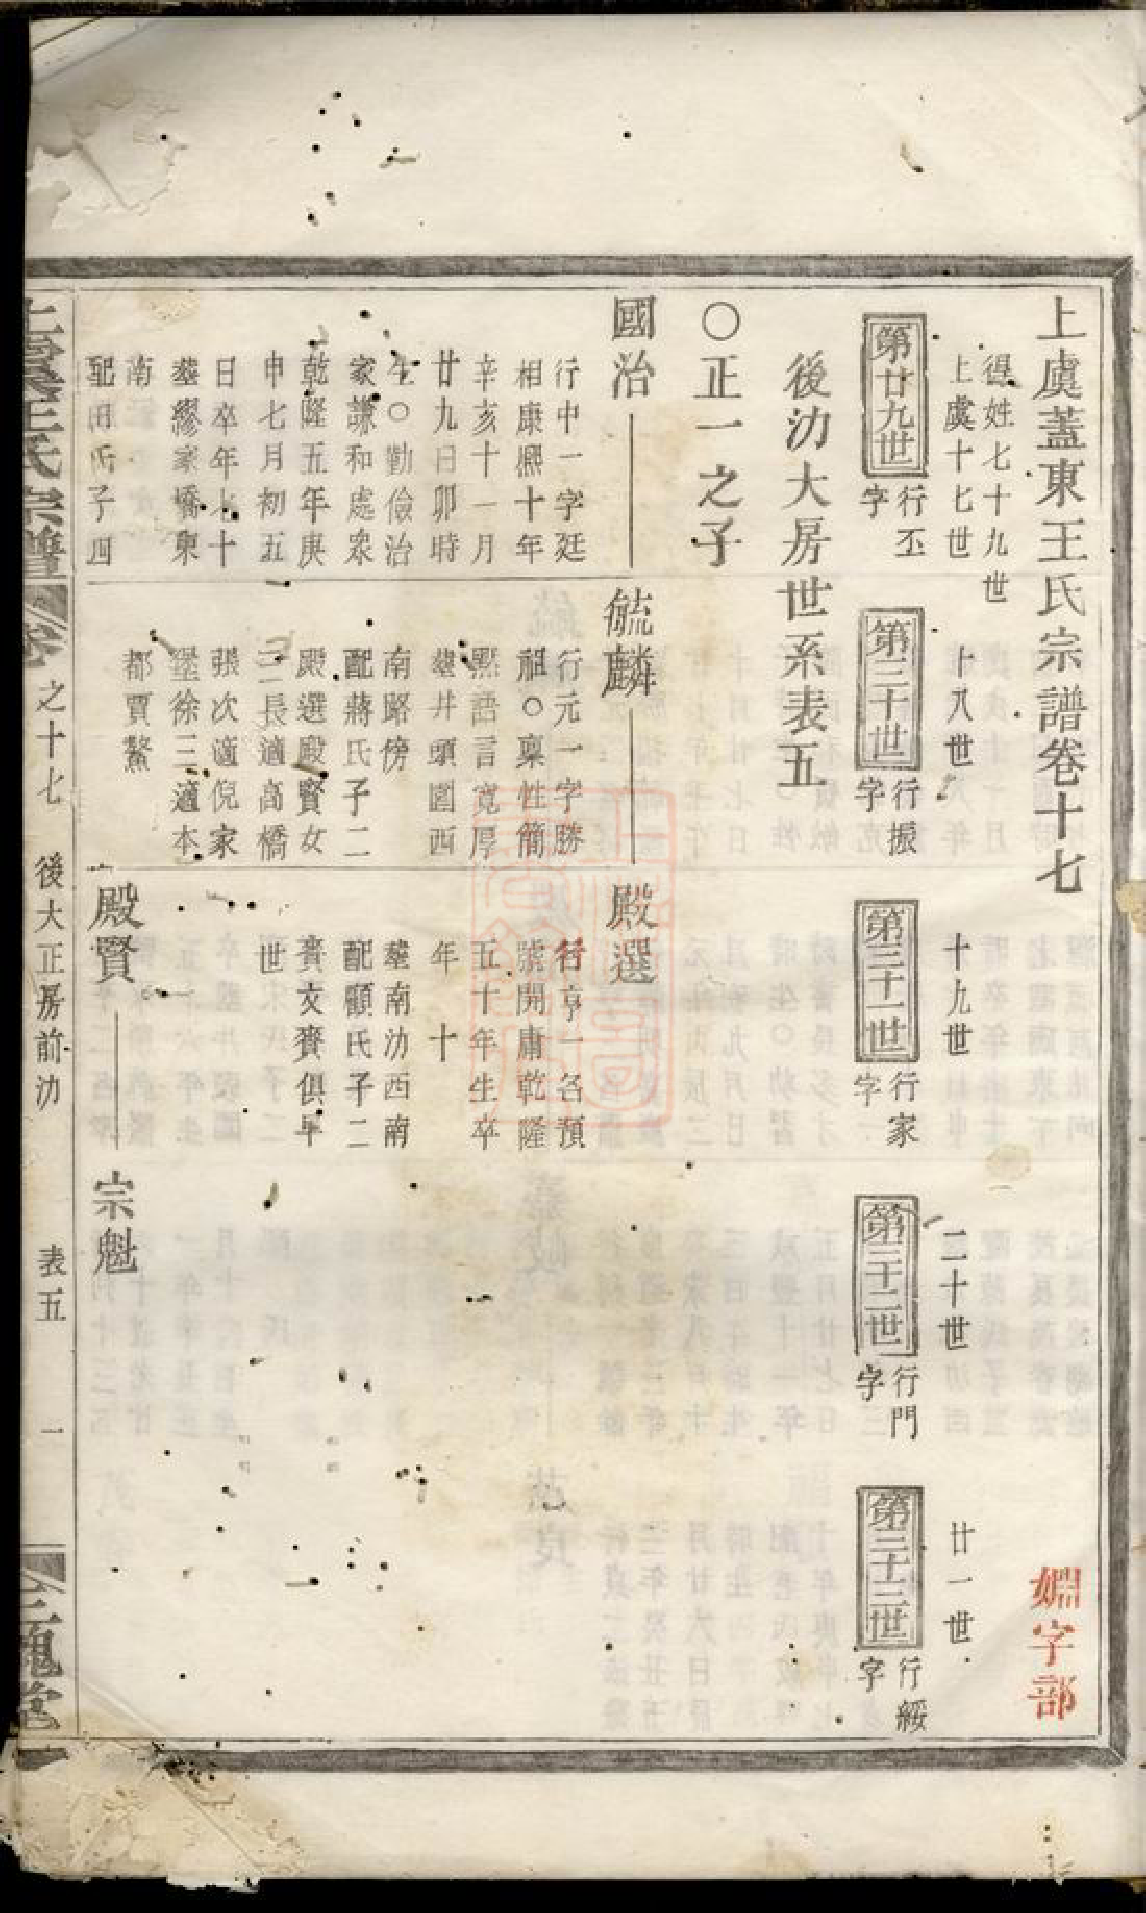 上虞蓋東王氏宗譜卷十七
嫻字部
得姓七十九世
上虞十七世
十八世
十九世
二十世
廿一世
第廿九世
行丕
字
第三十世
行振
字
第三十一世
行家
字
第三十二世
行門
字
第三十三世
行綏
字
後氻大房世系表五
○正一之子
國治
行中一字廷
相康熙十年
辛亥十一月
廿九日卯時
生○勤儉治
家謙和處眾
乾隆五年庚
申七月初五
日卒年七十
葬繆家橋東
南
配田氏子四
毓麟
行元一字勝
祖○稟性簡
默語言寬厚
葬井頭園西
南路傍
配蔣氏子二
殿選殿賢女
三長適高橋
張次適倪家
堡徐三適本
都賈鰲
殿選
行亨一名預
號開庸乾隆
五十年生卒
年 十
葬南氻西南
配顧氏子二
賚文賚俱早
世
殿賢
宗魁
上虞王氏宗譜
卷之十七
後大正房前氻
表五
一
三槐堂